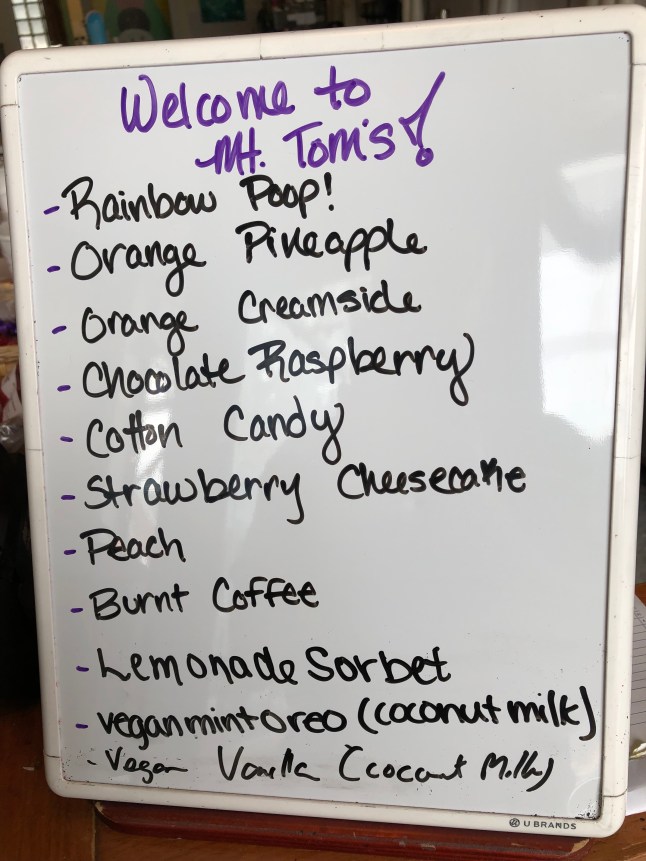 Welcome to
Mt. Tom's!
- Rainbow Poop!
- Orange Pineapple
- Orange Creamside
- Chocolate Raspberry
- Cotton Candy
- Strawberry Cheesecake
- Peach
- Burnt Coffee
- Lemonade Sorbet
- vegan mint oreo (coconut milk)
- Vegan Vanilla (cocount Milk)
U BRANDS